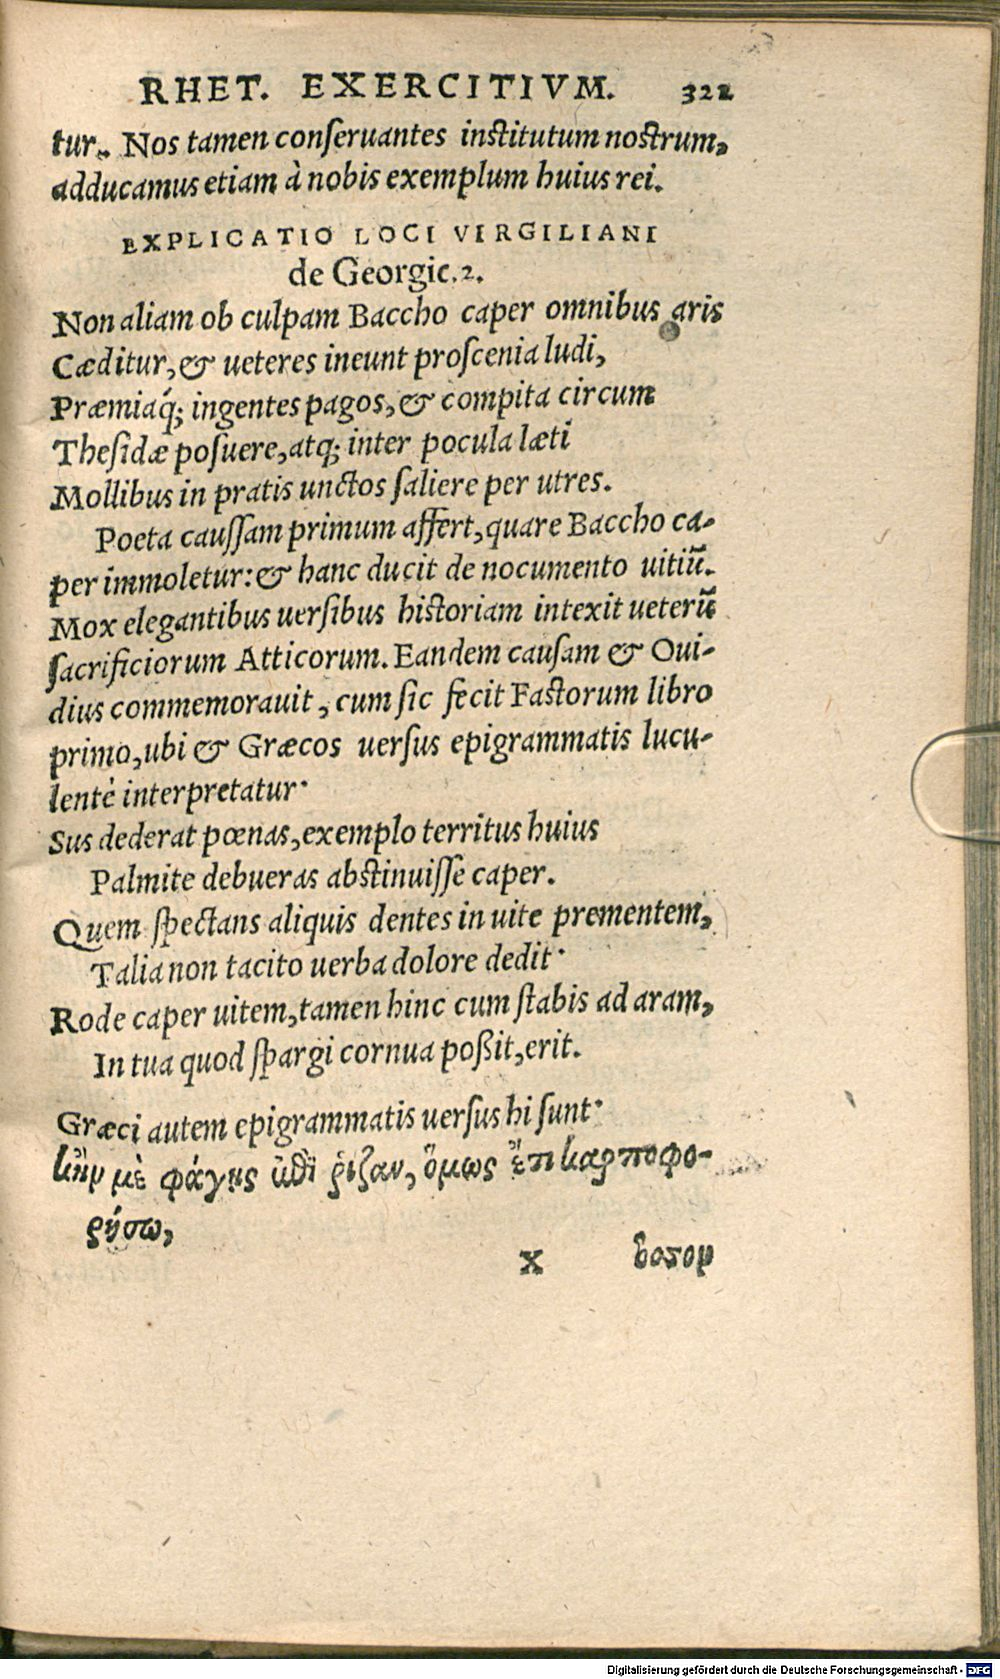 RHET. EXERCITIVM. 322
tur. Nos tamen conſeruantes inſtitutum noſtrum,
adducamus etiam à nobis exemplum huius rei.
EXPLICATIO LOCI VIRGILIANI
de Georgic.2.
Non aliam ob culpam Baccho caper omnibus aris
Cæditur, & ueteres ineunt proſcenia ludi,
Præmiaq́; ingentes pagos, & compita circum
Theſidæ poſuere, atq; inter pocula læti
Mollibus in pratis unctos ſaliere per utres.
Poeta cauſſam primum affert, quare Baccho ca-
per immoletur: & hanc ducit de nocumento uitiũ.
Mox elegantibus uerſibus hiſtoriam intexit ueterũ
ſacrificiorum Atticorum. Eandem cauſam & Oui-
dius commemorauit, cum ſic fecit Faſtorum libro
primo, ubi & Græcos uerſus epigrammatis lucu-
lentè interpretatur·
Sus dederat pœnas, exemplo territus huius
Palmite debueras abſtinuiſſe caper.
Quem ſpectans aliquis dentes in uite prementem,
Talia non tacito uerba dolore dedit·
Rode caper uitem, tamen hinc cum ſtabis ad aram,
In tua quod ſpargi cornua poßit, erit.
Græci autem epigrammatis uerſus hi ſunt·
κἤν μὲ φάγῃς ῥίζαν, ὅμως ἔπι καρποφο-
ρήσω,
x βοτου
Digitalisierung gefördert durch die Deutsche Forschungsgemeinschaft - DFG